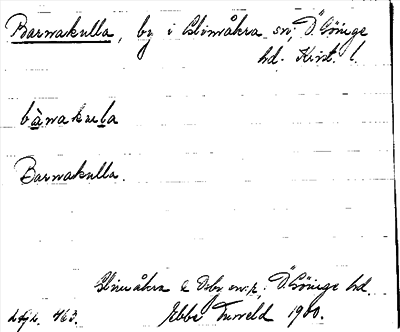 Barnakulla, by i Glimåkra sn; Ö Göinge
hd. Krist. l.
bànakula
Barnakulla.
Glimåkra & Örby sn:r; Ö Göinge hd.
463. Ebbe Tuneld 1900.